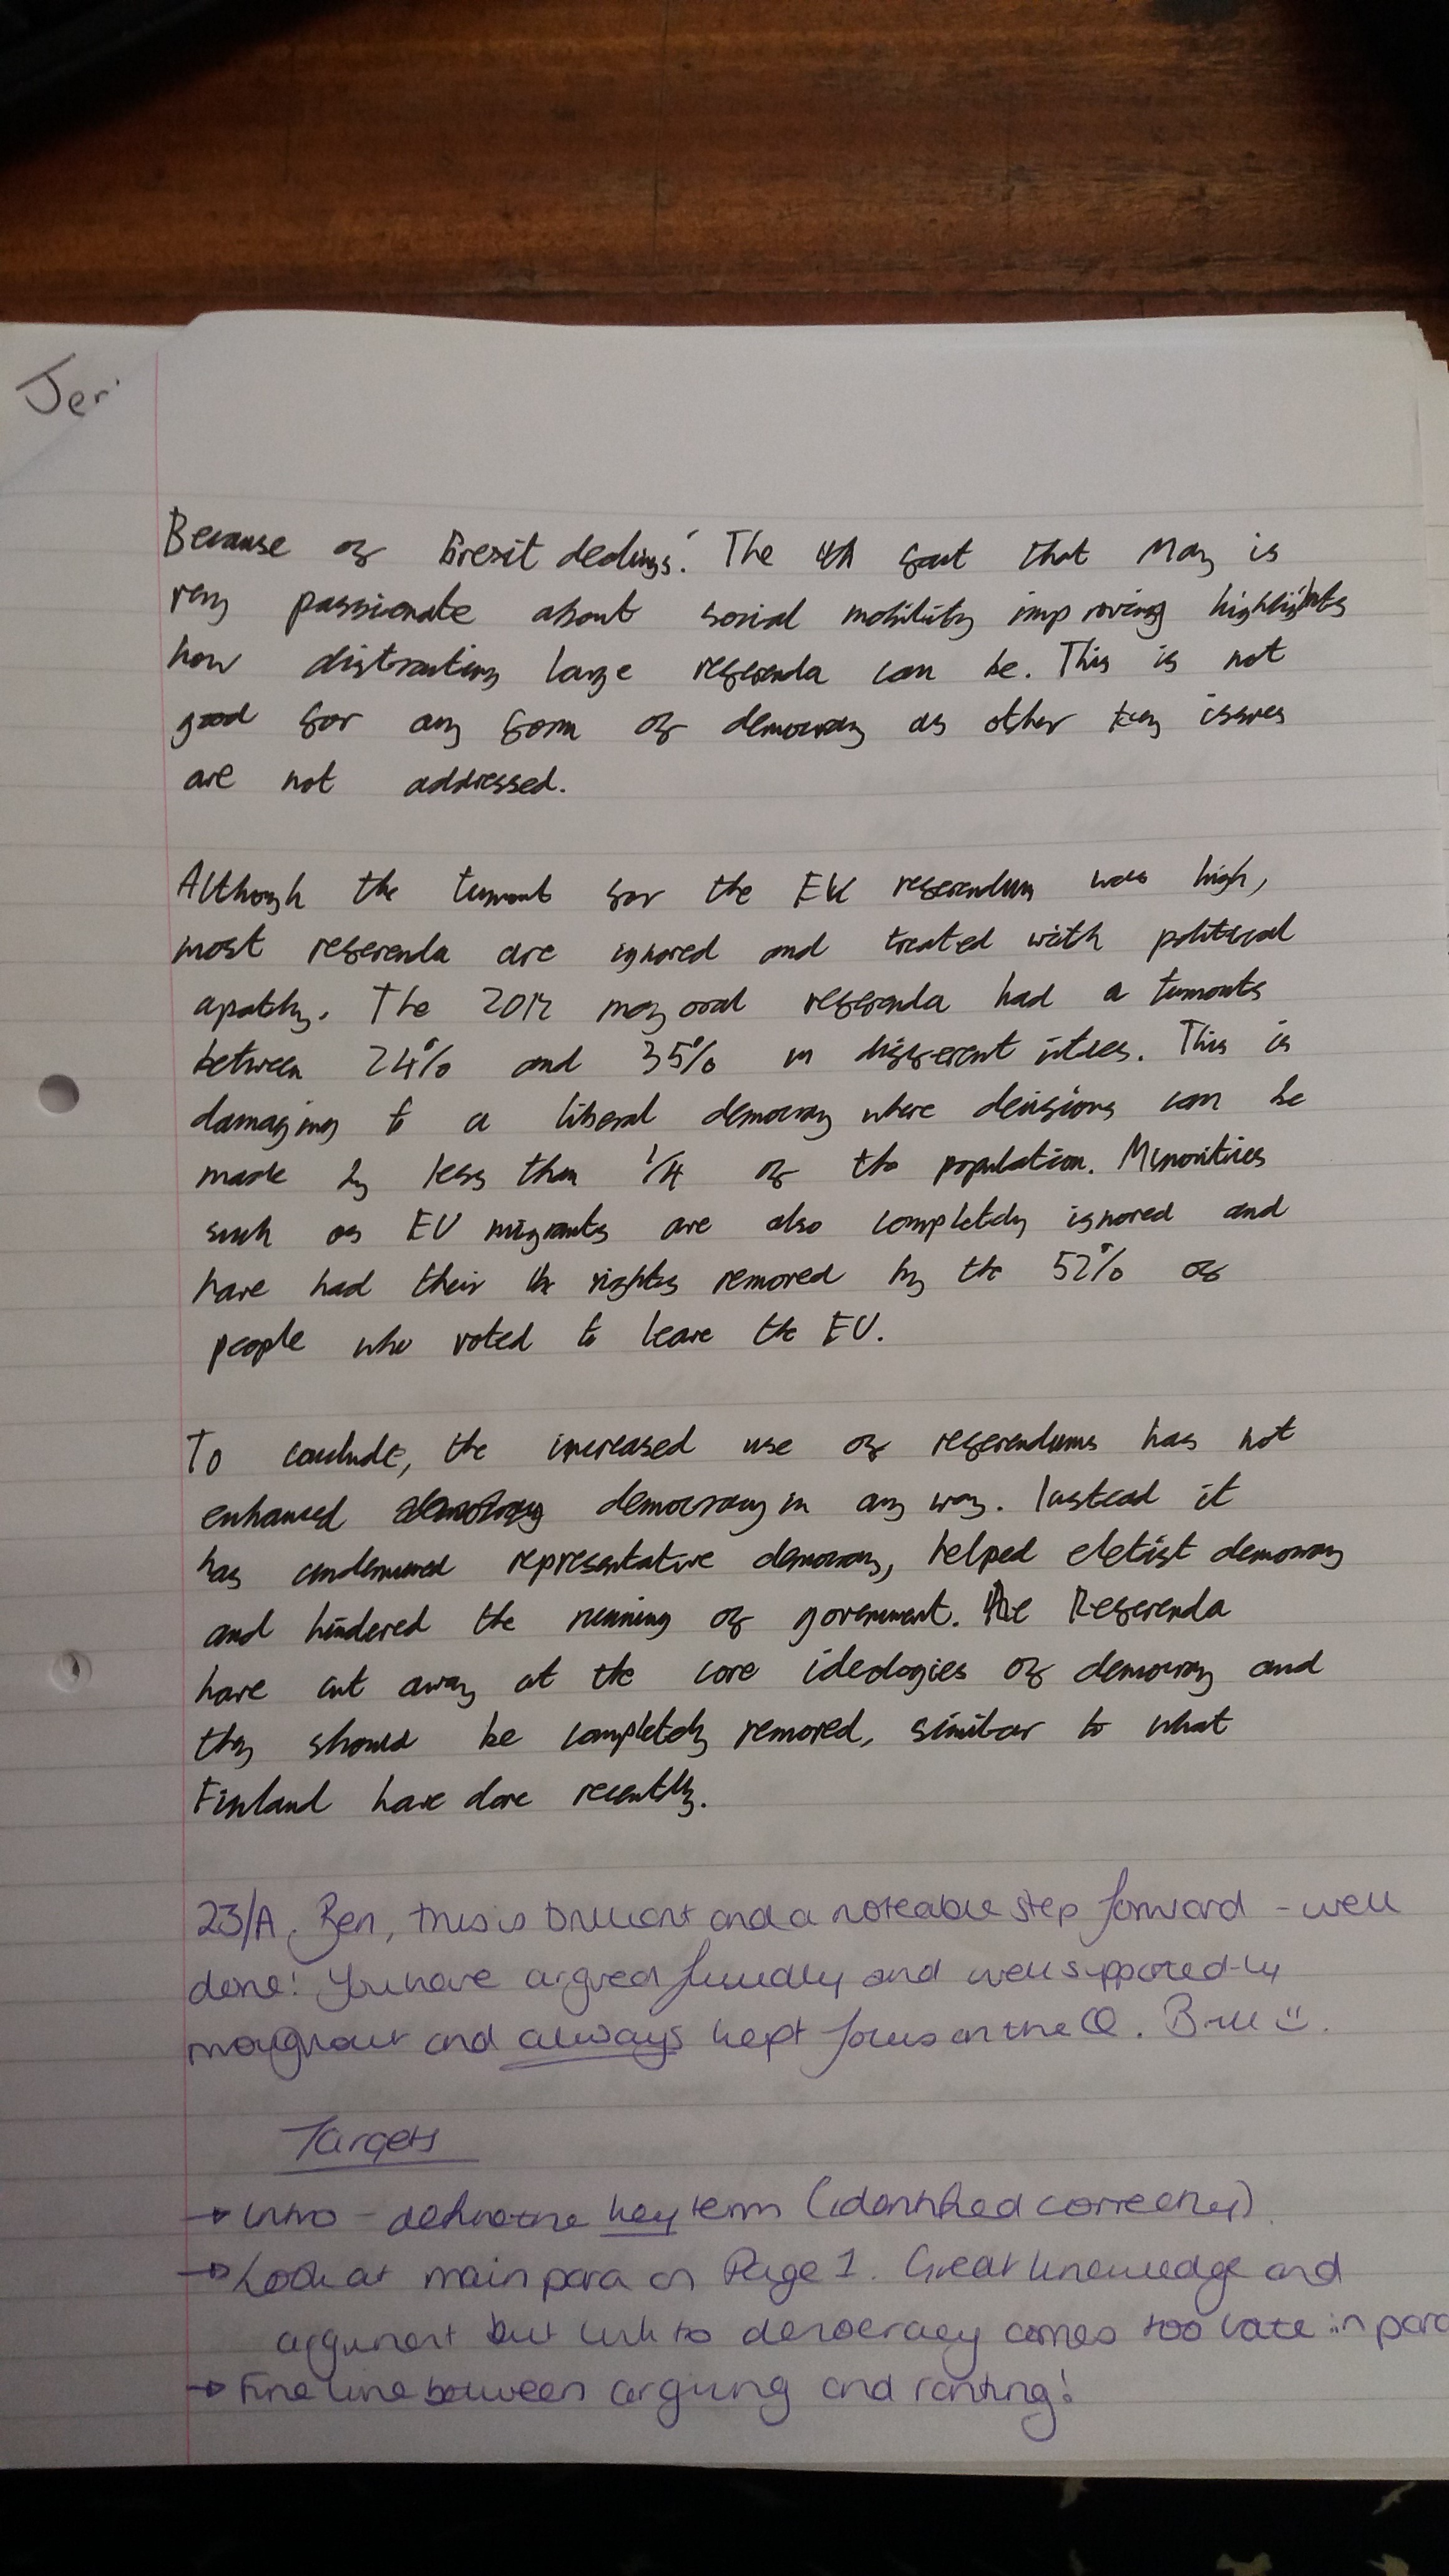 Jer
Because of Brexit dealings'. The fact that May is
very passionate about social mobility improving highlights
how distracting large referenda can be. This is not
good for any form of democracy as other key issues
are not addressed.
Although the turnout for the EU referendum was high,
most referenda are ignored and treated with political
apathy. The 2012 mayoral referenda had a turnouts
between 24% and 35% in different cities. This is
damaging to a liberal democracy where decisions can be
made by less than 1/4 of the population. Minorities
such as EU migrants are also completely ignored and
have had their rights removed by the 52% of
people who voted to leave the EU.
To conclude, the increased use of referendums has not
enhanced democracy in any way. Instead it
has condemned representative democracy, helped eletist democracy
and hindered the running of government. Referenda
have cut away at the core ideologies of democracy and
they should be completely removed, similar to what
Finland have done recently.
23/A. Ben, this is brilliant and a noteable step forward - well
done! You have argued and well supported-ly
throughout and always kept focus on the Q. Brill
Targets
→ Intro - define the key term (identified correctly).
→ Look at main para on Page 1. Great knowledge and
argument but link to democracy comes too late in para
→ Fine line between arguing and ranting!